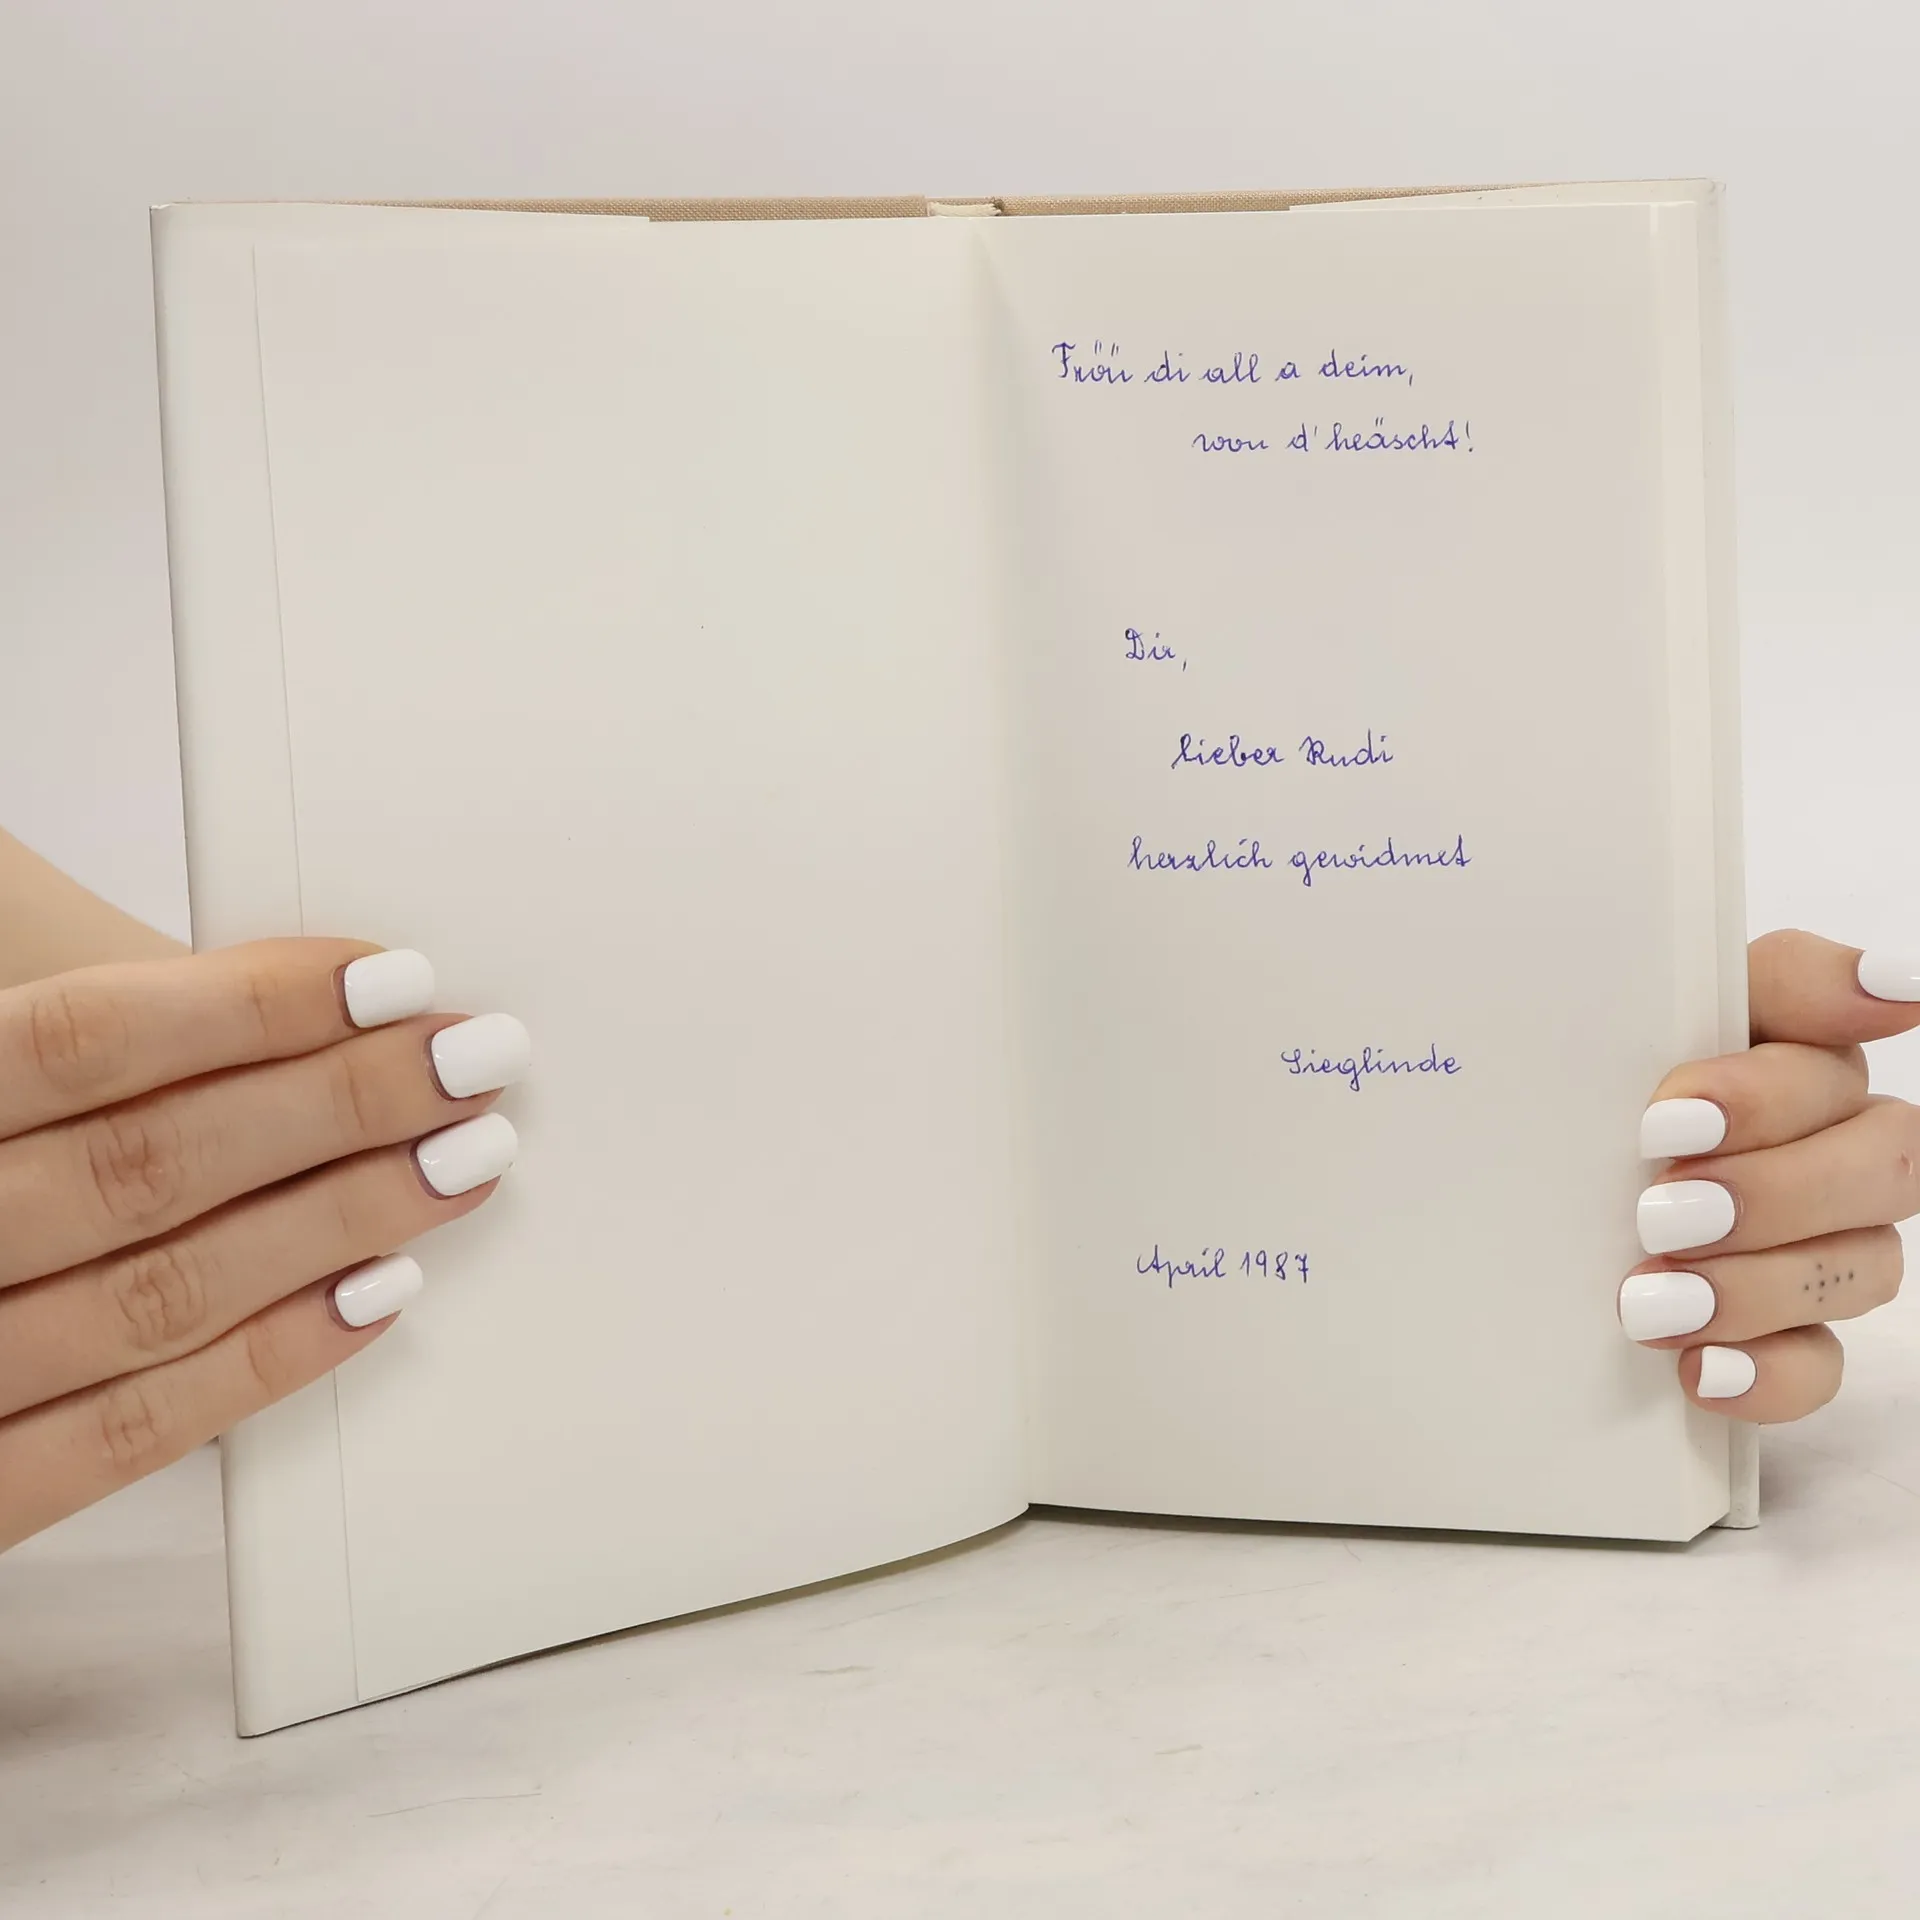 Fröü di all a deim,
wou d' heäscht!
Dir,
lieber Rudi
herzlich gewidmet
Sieglinde
April 1987